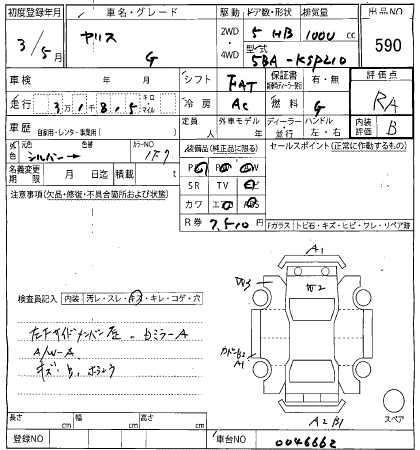 初度登録年月 車名・グレード 駆動 ドア数・形状 排気量 出品NO
3/5月 ヤリス G 2WD 4WD 5 HB 1000 cc 590
型式 5BA-KSP210
車検 年 月 シフト FAT 保証書 有・無 評価点
走行 3万1千8.5 キロ マイル 冷房 AC 燃料 G RA
車歴 自家用・レンタ・事業用( ) 定員 人 外車モデル 年 ディーラー 並行 ハンドル 左・右 内装評価 B
外色 元色 シルバー 色替 カラーNO 1F7 装備品(純正品に限る) セールスポイント(正常に作動するもの)
名義変更期限 月 日迄 積載 t
PS PW
SR TV
カワ エアB
R券 7,510 円
注意事項(欠品・修復・不具合箇所および状態)
Fガラス トビ石・キズ・ヒビ・ワレ・リペア跡
A1
W3
W2
検査員記入 内装 汚レ・スレ・キズ・キレ・コゲ・穴
左下サイドメンバー
ミラーA
A/W-A
キズ
A1
スペア
A2 B1
長さ cm 幅 cm 高さ cm
登録NO 車台NO 0046662